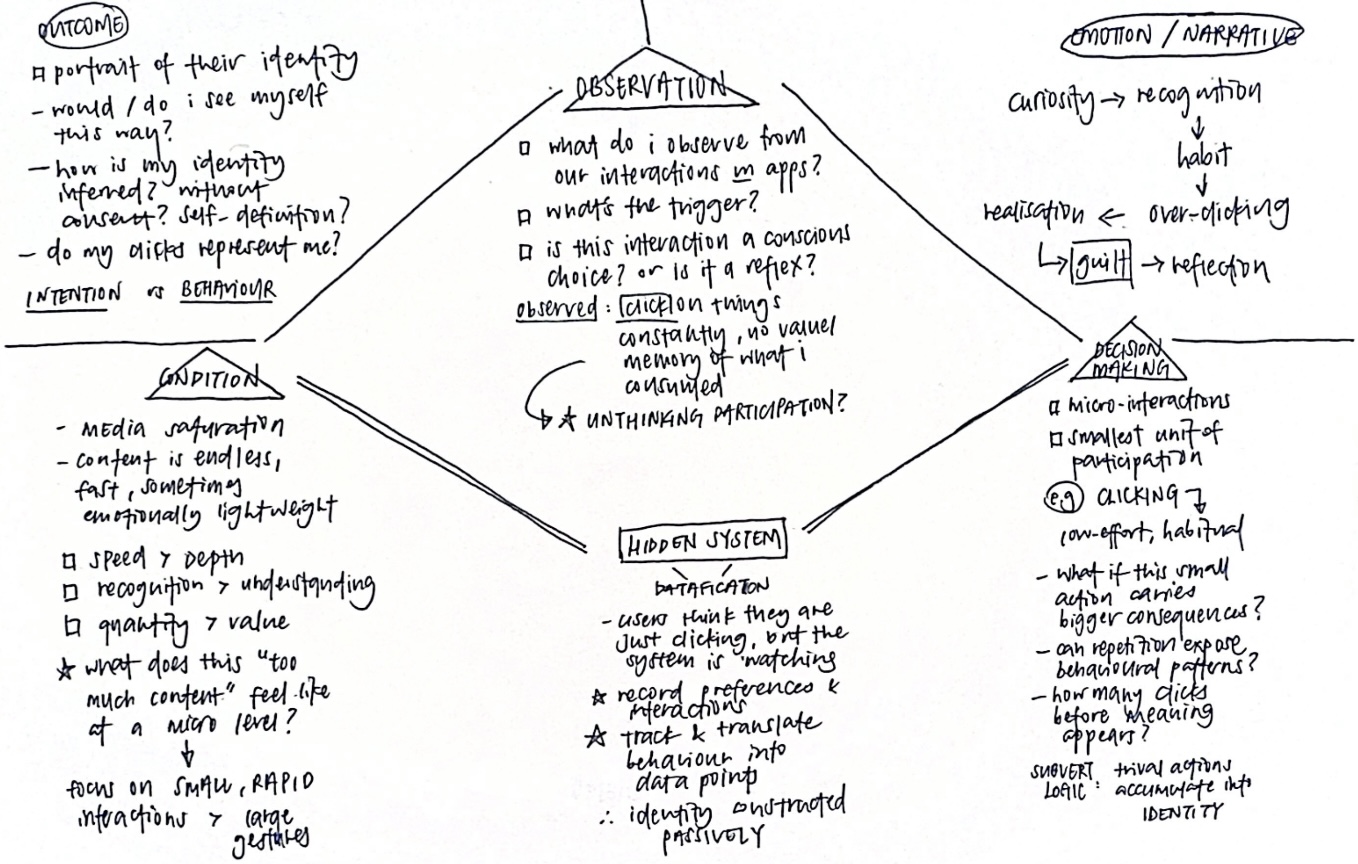 OUTCOME
portrait of their identity
- would / do i see myself
this way?
- how is my identity
inferred? without
consent? self-definition?
- do my clicks represent me?
INTENTION vs BEHAVIOUR
OBSERVATION
what do i observe from
our interactions in apps?
what's the trigger?
is this interaction a conscious
choice? or is it a reflex?
observed: click on things
constantly, no value/
memory of what i
consumed
☆ UNTHINKING PARTICIPATION?
EMOTION / NARRATIVE
curiosity → recognition
↓
habit
↓
realisation ← over-clicking
↳ guilt → reflection
CONDITION
- MEDIA saturation
- content is endless,
fast, sometimes
emotionally lightweight
SPEED > DEPTH
recognition > understanding
quantity > value
☆ what does this "too
much content" feel like
at a micro level?
↓
focus on SMALL, RAPID
interactions > large
gestures
HIDDEN SYSTEM
DATAFICATION
- users think they are
just clicking, but the
system is watching
☆ record preferences &
interactions
☆ track & translate
behaviour into
data points
∴ identity constructed
PASSIVELY
DECISION
MAKING
micro-interactions
smallest unit of
participation
e.g CLICKING
low-effort, habitual
- what if this small
action carries
bigger consequences?
- can repetition expose
behavioural patterns?
- how many clicks
before meaning
appears?
SUBVERT LOGIC: trival actions
accumulate into
IDENTITY